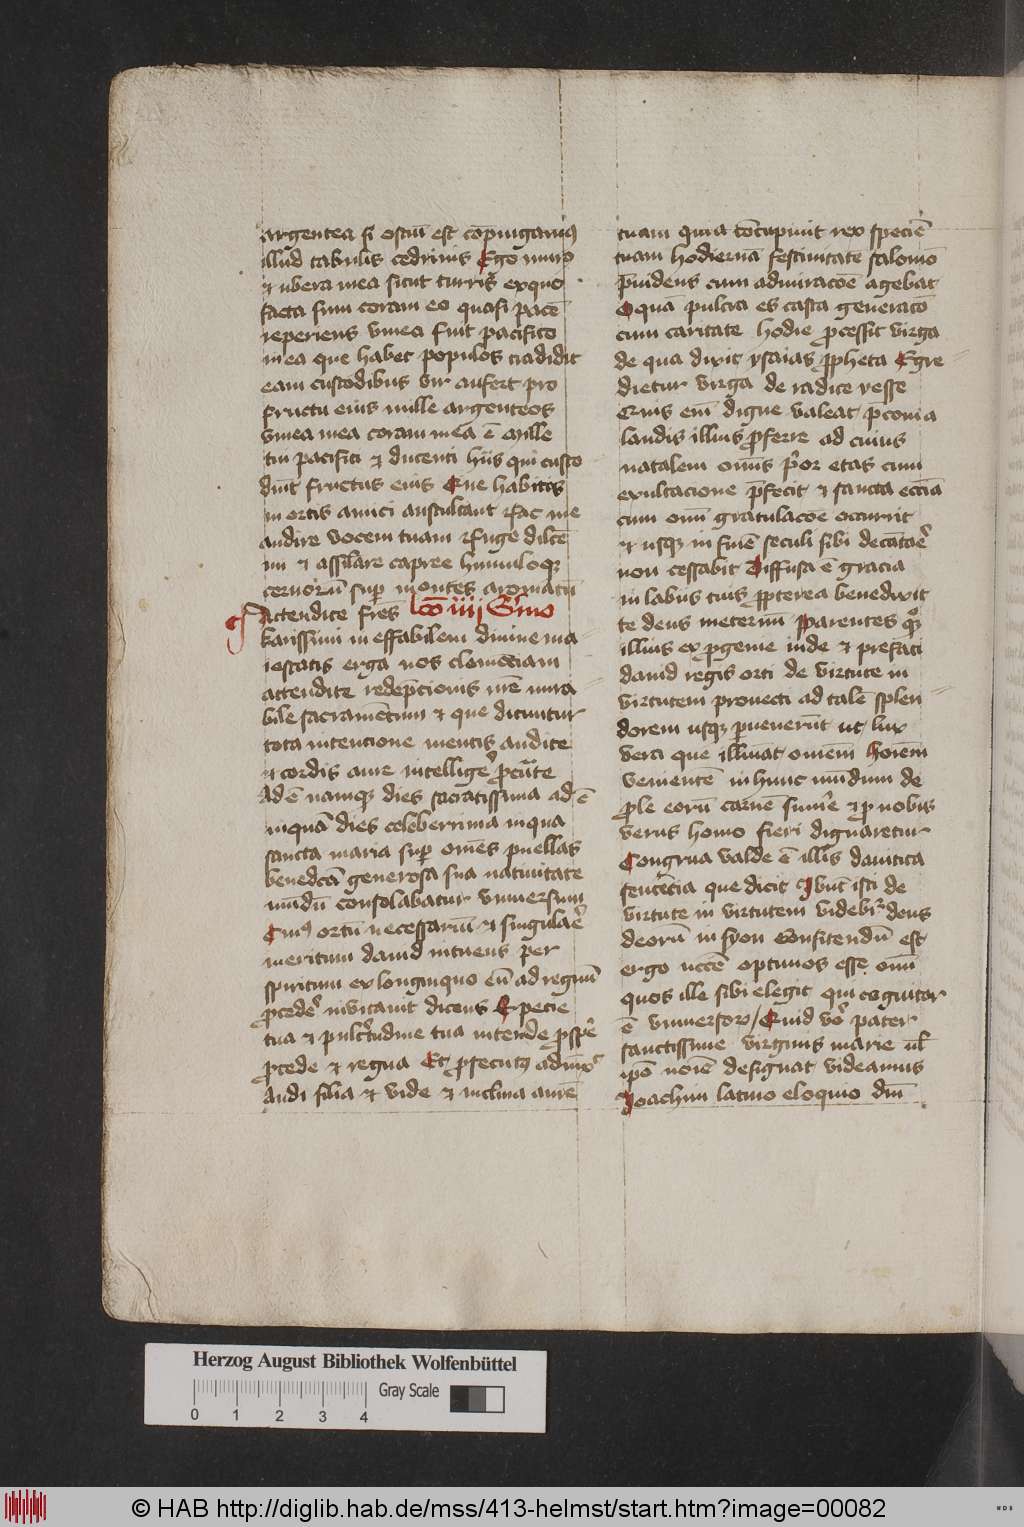 argentea si ostiū est cōpingamꝰ
illud tabulis cedrinis Ego muro
et ubera mea sicut turris exquo
facta sum coram eo quasi pacē
reperiens vinea fuit pacifico
mea que habet populos tradidit
eam custodibus vir aufert pro
fructu eius mille argenteos
vinea mea coram mea ē Mille
tui pacifici et ducenti hiis qui custo
diūt fructus eius Que habitas
in ortis amici auscultant fac me
audire vocem tuam Fuge dilcē
mi et assilare capree hinnuloqꝫ
ceruorū suꝑ montes aromatū
Attendite fres lc̄o iiij S'mo
karissimi in effabilem diuine ma
iestatis erga nos clemēciam
attendite redēpcionis nr̄e mira
bile sacramētum et que dicuntur
tota intencione mentis audite
et cordis aure intelligē ꝓcurate
Ad ē namqꝫ dies sacratissima ad ē
inquā dies celeberrima in qua
sancta maria suꝑ oīnes puellas
benedcā generosa sua natiuitate
mūdū consolabatur vniuersum
Cuiꝰ ortū necessariū et singularē
meritum dauid intuens per
spiritum ex longinquo eū ad regnū
ꝓcedē inuitauit dicens Specie
tua et pulcritudine tua intende ꝓspē
ꝓcede et regna Et ꝓsecutꝰ
Audi filia et vide et inclina aurē
tuam quia cōcupiuit rex speciē
tuam hodiernā festiuitatē salomō
p̄uidens cum admiracōe agebat
O quā pulcra es casta generacō
cum caritate hodie ꝓcessit virga
de qua dixit ysaias ꝓpheta Egre
dietur virga de radice yesse
Quis em̄ digne valeat p̄conia
laudis illius ꝓferre ad cuius
natalem om̄is p'or etas cum
exultacione p̄fecit et sancta eccīa
cum om̄i gratulacōe occurrit
et usqꝫ in finē seculi sibi decātaē
non cessabit Diffusa ē gracia
in labiis tuis ꝓpterea benedixit
te deus in eternū Parentes qꝫ
illius ex ꝓgenie iude et prefati
dauid regis orti de virtute in
virtutem prouecti ad talē splen
dorem usqꝫ ꝑuenerūt ut lux
vera que illuīat omēm hoīem
venientē in hunc mūdum de
ꝓle eorū carnē sumē et ꝓ nobis
verus homo fieri dignaretur
Congrua valde ē illis dauitica
sentēcia que dicit Ibūt isti de
virtute in virtutem videbiť deus
deorū in syon Confitendū est
ergo optimos esse om̄i
quos ille sibi elegit qui cognitor
ē vniuersorꝫ / Quid vō pater
sanctissime virginis marie ul'
ip̄o noīe designat videamus
Joachim latino eloquio dn̄i
Herzog August Bibliothek Wolfenbüttel
Gray Scale
0 1 2 3 4
© HAB http://diglib.hab.de/mss/413-helmst/start.htm?image=00082